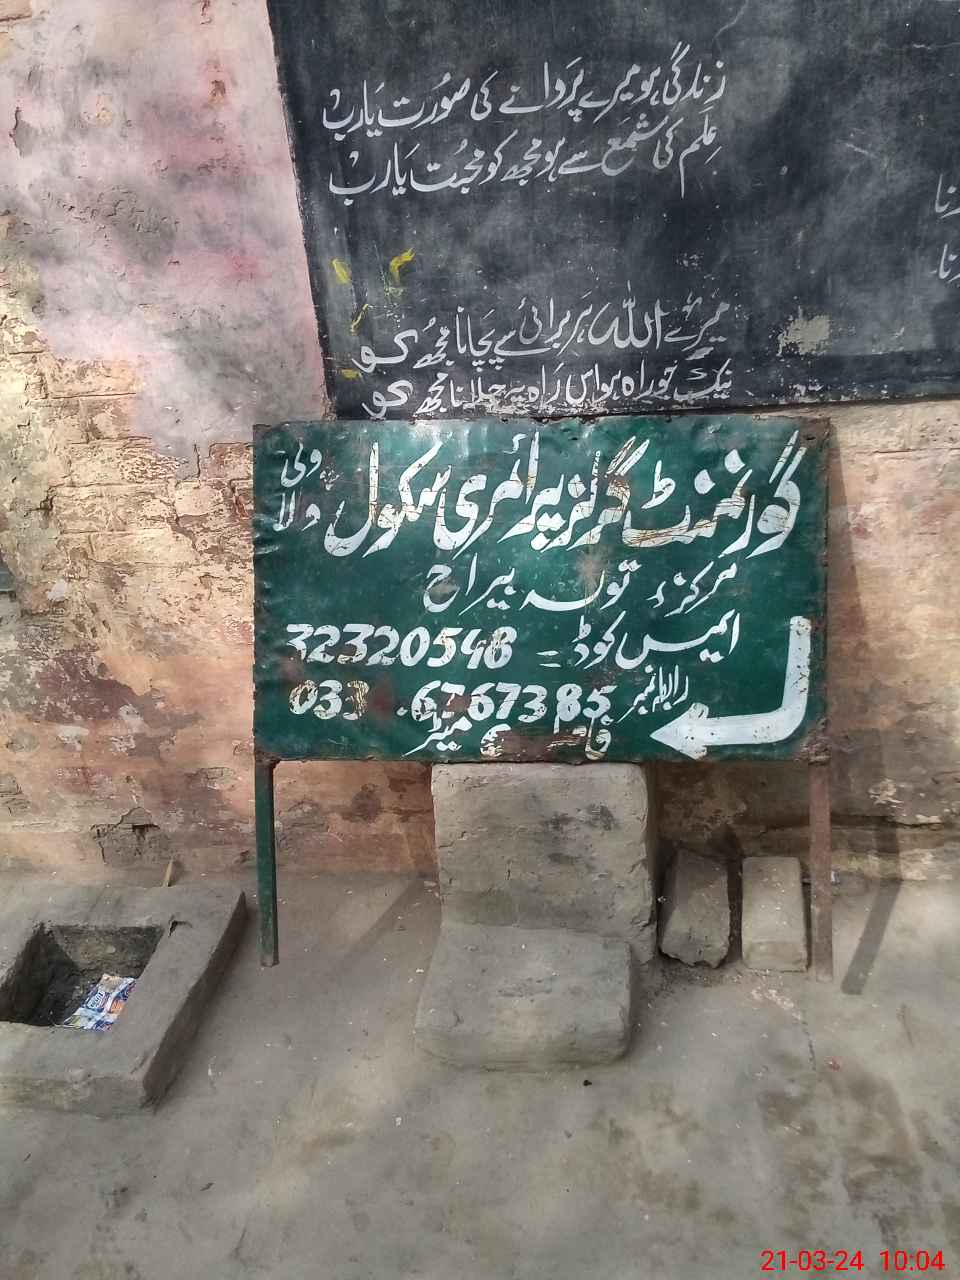 زندگی ہو میرے پَروانے کی صُورت یَارب
عِلم کی شمَع سے ہو مجھ کو محبُت یَارب
میرے اللہ ہَر برائی سے بَچانا مجھُ کو
نیک جو راہ ہو اس رَاہ پہ چلانا مجھ کو
رنا
رنا
گورنمنٹ گرلز پرائمری سکول ولی والا
مرکز توسہ بیراج
ایمس کوڈ = 32320548
رابطہ نمبر 033 .6767385
میٹر
21-03-24 10:04